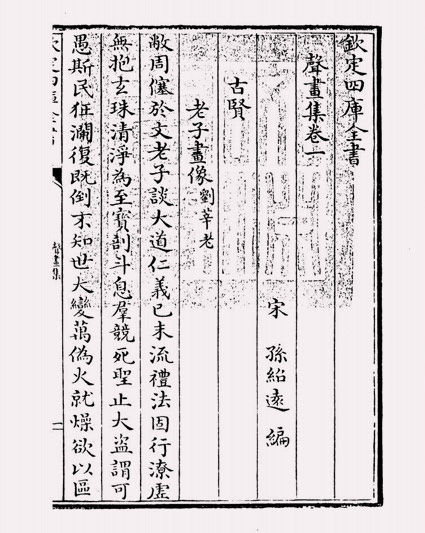 欽定四庫全書
聲畫集卷一
宋 孫紹遠 編
古賢
老子畫像 劉莘老
敝周僿於文老子談大道仁義已末流禮法固行潦虛
無抱玄珠清淨為至寶剖斗息羣競死聖止大盜謂可
愚斯民狂瀾復既倒未知世大變萬偽火就燥欲以區
欽定四庫全書
聲畫集
一